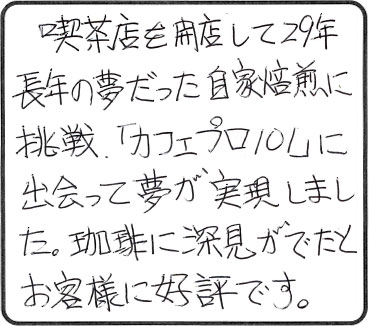 喫茶店を開店して29年
長年の夢だった自家焙煎に
挑戦.「カフェプロ101」に
出会って夢が実現しまし
た。珈琲に深見がでたと
お客様に好評です。